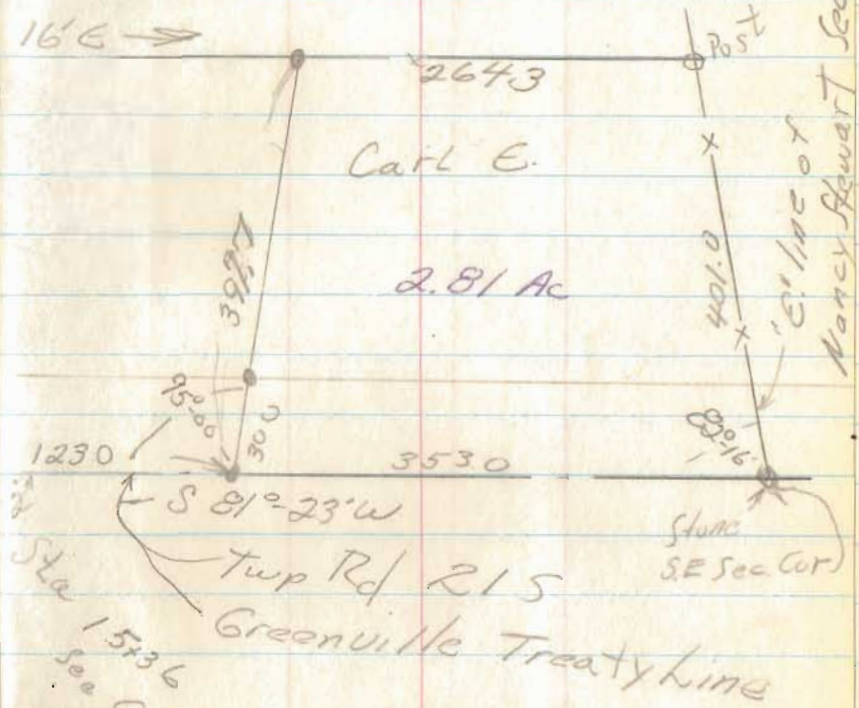 16'E
2643
Post
Carl E.
2.81 Ac
401.0
"E." line of
Nancy Stewart Sec
95°-00
300
82°-16'
1230
3530
S 81°-23' W
Stone
S.E Sec. Cor)
Twp Rd 215
Greenville Treaty Line
Sta
15+36
See